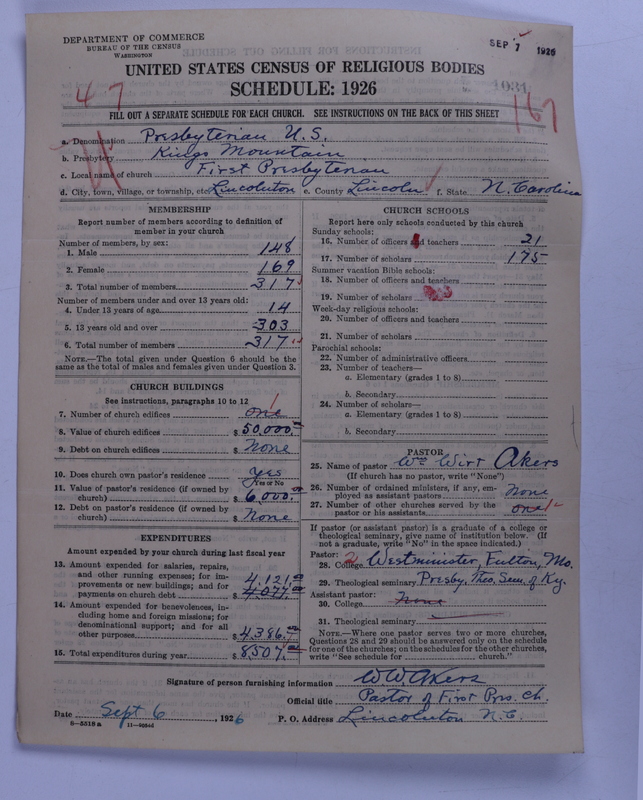 DEPARTMENT OF COMMERCE
BUREAU OF THE CENSUS
WASHINGTON
SEP 7 1926
UNITED STATES CENSUS OF RELIGIOUS BODIES
SCHEDULE: 1926
4 7
167
FILL OUT A SEPARATE SCHEDULE FOR EACH CHURCH. SEE INSTRUCTIONS ON THE BACK OF THIS SHEET
a. Denomination Presbyterian U.S.
b. Presbytery Kings Mountain
c. Local name of church First Presbyterian
d. City, town, village, or township, etc. Lincolnton e. County Lincoln f. State N. Carolina
MEMBERSHIP
Report number of members according to definition of
member in your church
Number of members, by sex:
1. Male 148
2. Female 169
3. Total number of members 317
Number of members under and over 13 years old:
4. Under 13 years of age 14
5. 13 years old and over 303
6. Total number of members 317
NOTE.—The total given under Question 6 should be the
same as the total of males and females given under Question 3.
CHURCH BUILDINGS
See instructions, paragraphs 10 to 12
7. Number of church edifices one
8. Value of church edifices $ 50,000.00
9. Debt on church edifices $ None
10. Does church own pastor's residence Yes
Yes or No
11. Value of pastor's residence (if owned by
church) $ 6,000.00
12. Debt on pastor's residence (if owned by
church) $ None
EXPENDITURES
Amount expended by your church during last fiscal year
13. Amount expended for salaries, repairs,
and other running expenses; for im-
provements or new buildings; and for 4,121.00
payments on church debt $ 4,077.00
14. Amount expended for benevolences, in-
cluding home and foreign missions; for
denominational support; and for all
other purposes $ 4,386.
15. Total expenditures during year $ 8507.
CHURCH SCHOOLS
Report here only schools conducted by this church
Sunday schools:
16. Number of officers and teachers 21
17. Number of scholars 175
Summer vacation Bible schools:
18. Number of officers and teachers
19. Number of scholars
Week-day religious schools:
20. Number of officers and teachers
21. Number of scholars
Parochial schools:
22. Number of administrative officers
23. Number of teachers—
a. Elementary (grades 1 to 8)
b. Secondary
24. Number of scholars—
a. Elementary (grades 1 to 8)
b. Secondary
PASTOR
25. Name of pastor Wm Wirt Akers
(If church has no pastor, write "None")
26. Number of ordained ministers, if any, em-
ployed as assistant pastors None
27. Number of other churches served by the
pastor or his assistants one
If pastor (or assistant pastor) is a graduate of a college or
theological seminary, give name of institution below. (If
not a graduate, write "No" in the space indicated.)
Pastor:
28. College 2 Westminister, Fulton, Mo.
29. Theological seminary Presby. Theo. Sem. of Ky.
Assistant pastor:
30. College None
31. Theological seminary
NOTE.—Where one pastor serves two or more churches,
Questions 28 and 29 should be answered only on the schedule
for one of the churches; on the schedules for the other churches,
write "See schedule for church."
Signature of person furnishing information W W Akers
Official title Pastor of First Pres. Ch.
Date Sept 6, 1926 P. O. Address Lincolnton N.C.